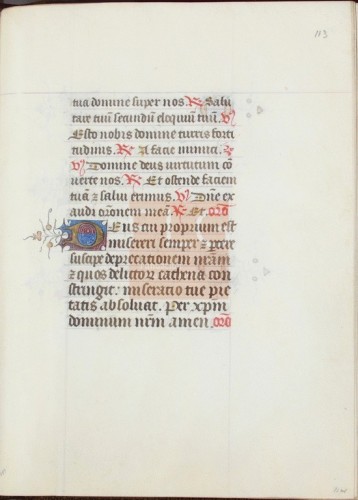 113
tua domine super nos. R Salu
tare tuū secundū eloquiū tuū. V
Esto nobis domine turris forti
tudinis. R A facie inimici. 
V Domine deus virtutum cō
verte nos. R Et ostende faciem
tuā ⁊ salvi erimus. V Dn̄e ex
audi or̄onem meā R Et. orō
Deus cui proprium est
misereri semper ⁊ p̄cere
suscipe deprecationem nr̄am
⁊ quos delictor̄ cathena con
stringit: miseratio tue pie
tatis absoluat. Per xp̄m
dominum nr̄m amen. orō